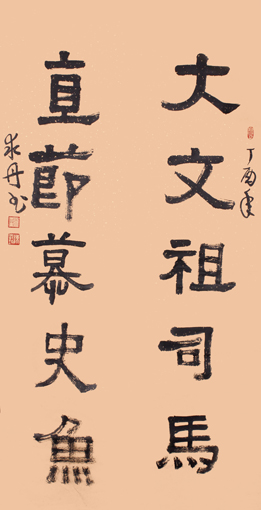 大文祖司馬
丁酉年
直節慕史魚
書